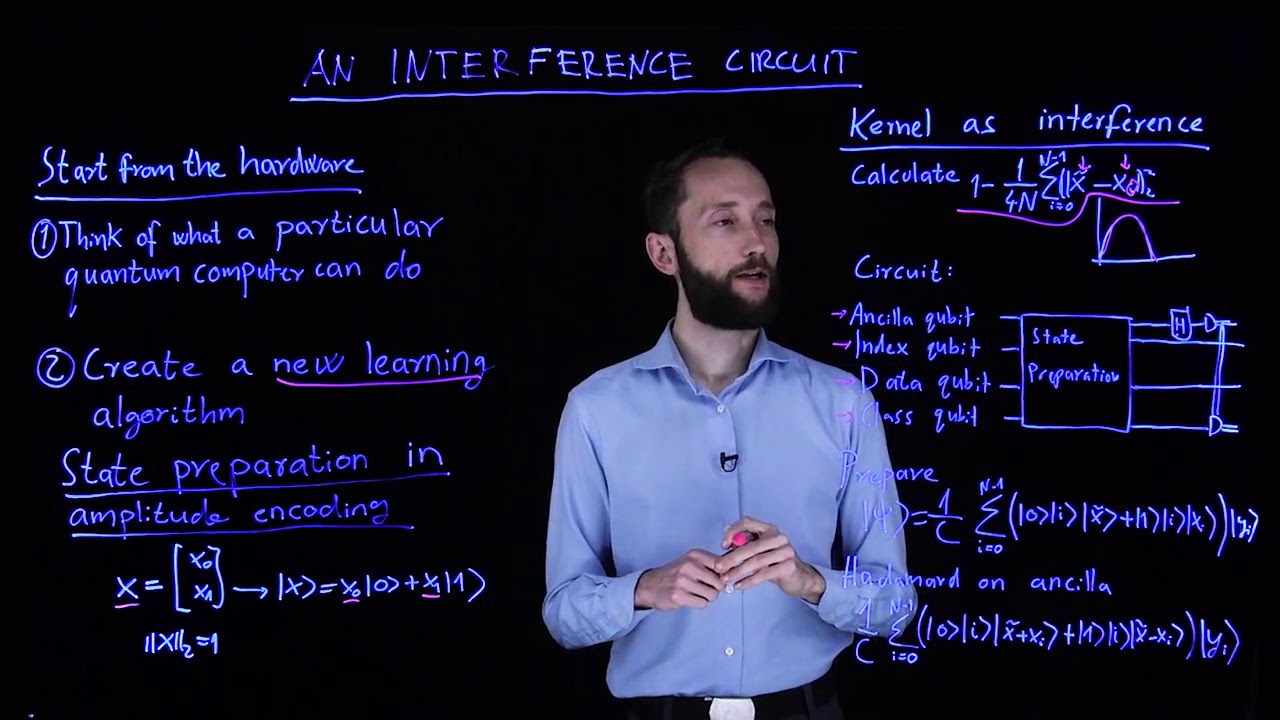 AN INTERFERENCE CIRCUIT
Start from the hardware
① Think of what a particular
quantum computer can do
② Create a new learning
algorithm
State preparation in
amplitude encoding
x = [x₀ x₁] → |x⟩=x₀|0⟩+x₁|1⟩
||x||₂=1
Kernel as interference
Calculate 1 - 1/4N Σ_{i=0}^{N-1} (||x̃ - x_i||)₂²
Circuit:
→ Ancilla qubit
→ Index qubit
→ Data qubit
→ Class qubit
State
Preparation
H
Prepare
|ψ⟩ = 1/C Σ_{i=0}^{N-1} (|0⟩|i⟩|x̃⟩+|1⟩|i⟩|x_i⟩)|y_i⟩
Hadamard on ancilla
1/C Σ_{i=0}^{N-1} (|0⟩|i⟩|x̃+x_i⟩+|1⟩|i⟩|x̃-x_i⟩)|y_i⟩